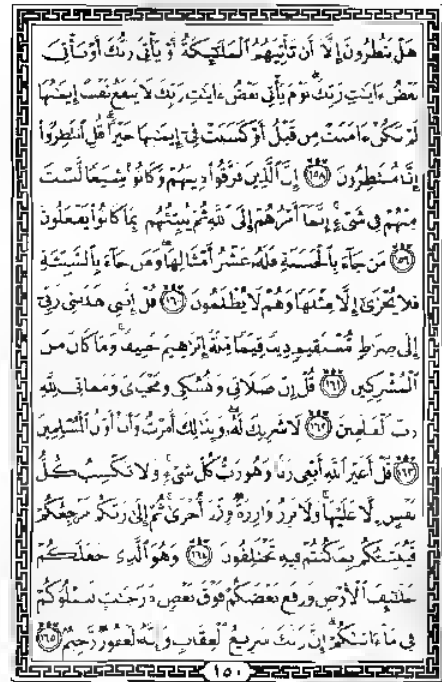 هَلْ يَنظُرُونَ إِلَّا أَن تَأْتِيَهُمُ الْمَلَٰٓئِكَةُ أَوْ يَأْتِىَ رَبُّكَ أَوْ يَأْتِىَ
بَعْضُ ءَايَٰتِ رَبِّكَ ۗ يَوْمَ يَأْتِى بَعْضُ ءَايَٰتِ رَبِّكَ لَا يَنفَعُ نَفْسًا إِيمَٰنُهَا
لَمْ تَكُنْ ءَامَنَتْ مِن قَبْلُ أَوْ كَسَبَتْ فِىٓ إِيمَٰنِهَا خَيْرًا ۗ قُلِ انتَظِرُوٓا
إِنَّا مُنتَظِرُونَ ١٥٨ إِنَّ الَّذِينَ فَرَّقُوا دِينَهُمْ وَكَانُوا شِيَعًا لَّسْتَ
مِنْهُمْ فِى شَىْءٍ ۚ إِنَّمَآ أَمْرُهُمْ إِلَى اللَّهِ ثُمَّ يُنَبِّئُهُم بِمَا كَانُوا يَفْعَلُونَ
١٥٩ مَن جَآءَ بِالْحَسَنَةِ فَلَهُۥ عَشْرُ أَمْثَالِهَا ۖ وَمَن جَآءَ بِالسَّيِّئَةِ
فَلَا يُجْزَىٰٓ إِلَّا مِثْلَهَا وَهُمْ لَا يُظْلَمُونَ ١٦٠ قُلْ إِنَّنِى هَدَىٰنِى رَبِّىٓ
إِلَىٰ صِرَٰطٍ مُّسْتَقِيمٍ دِينًا قِيَمًا مِّلَّةَ إِبْرَٰهِيمَ حَنِيفًا ۚ وَمَا كَانَ مِنَ
الْمُشْرِكِينَ ١٦١ قُلْ إِنَّ صَلَاتِى وَنُسُكِى وَمَحْيَاىَ وَمَمَاتِى لِلَّهِ
رَبِّ الْعَٰلَمِينَ ١٦٢ لَا شَرِيكَ لَهُۥ ۖ وَبِذَٰلِكَ أُمِرْتُ وَأَنَا أَوَّلُ الْمُسْلِمِينَ
١٦٣ قُلْ أَغَيْرَ اللَّهِ أَبْغِى رَبًّا وَهُوَ رَبُّ كُلِّ شَىْءٍ ۚ وَلَا تَكْسِبُ كُلُّ
نَفْسٍ إِلَّا عَلَيْهَا ۚ وَلَا تَزِرُ وَازِرَةٌ وِزْرَ أُخْرَىٰ ۚ ثُمَّ إِلَىٰ رَبِّكُم مَّرْجِعُكُمْ
فَيُنَبِّئُكُم بِمَا كُنتُمْ فِيهِ تَخْتَلِفُونَ ١٦٤ وَهُوَ الَّذِى جَعَلَكُمْ
خَلَٰٓئِفَ الْأَرْضِ وَرَفَعَ بَعْضَكُمْ فَوْقَ بَعْضٍ دَرَجَٰتٍ لِّيَبْلُوَكُمْ
فِى مَآ ءَاتَىٰكُمْ ۗ إِنَّ رَبَّكَ سَرِيعُ الْعِقَابِ وَإِنَّهُۥ لَغَفُورٌ رَّحِيمٌ ١٦٥
١٥٠